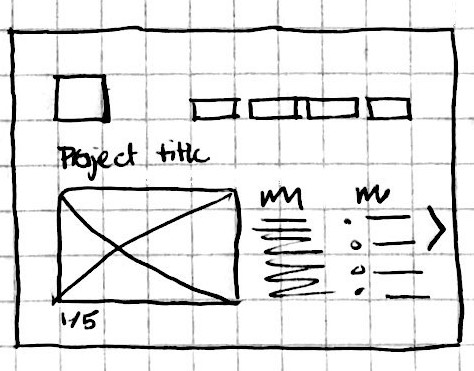 Project title
1/5